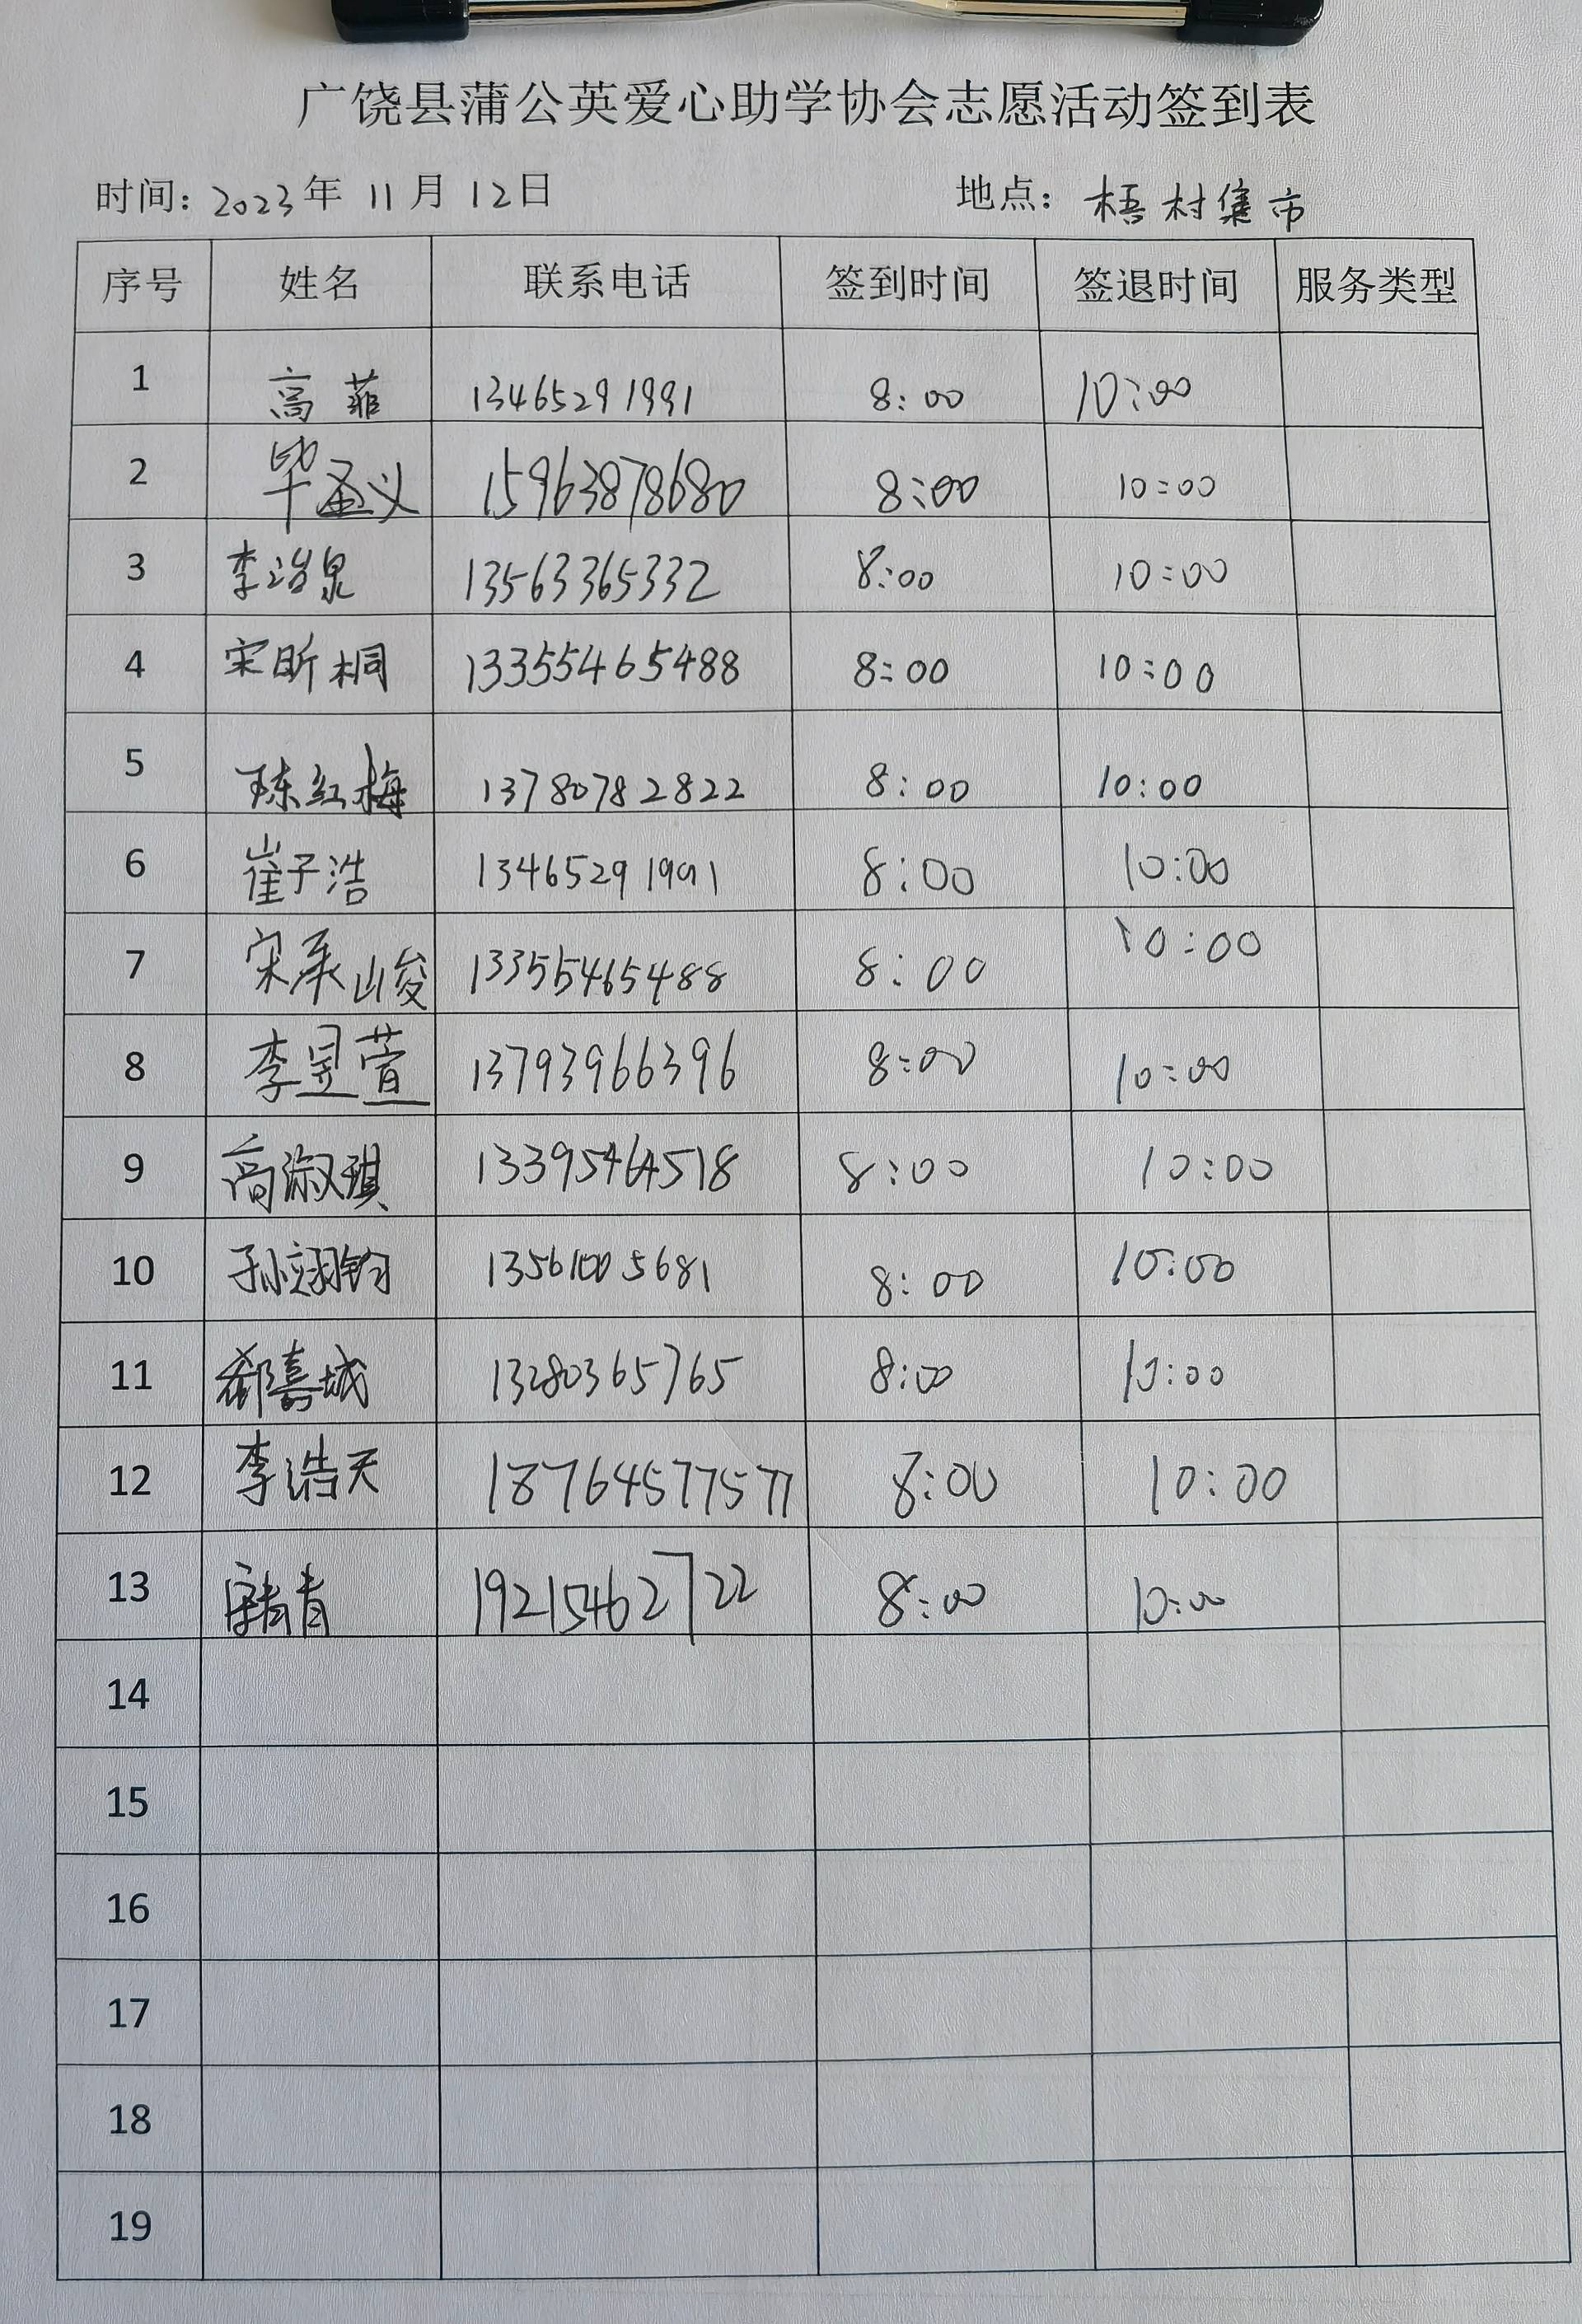 广饶县蒲公英爱心助学协会志愿活动签到表
时间: 2023年 11月 12日 地点: 梧村集市
序号 姓名 联系电话 签到时间 签退时间 服务类型
1 高菲 13465291991 8:00 10:00
2 毕圣义 15963878680 8:00 10:00
3 李治泉 13563365332 8:00 10:00
4 宋昕桐 13355465488 8:00 10:00
5 陈红梅 13780782822 8:00 10:00
6 崔子浩 13465291991 8:00 10:00
7 宋承峻 13355465488 8:00 10:00
8 李昱萱 13793966396 8:00 10:00
9 高淑琪 13395464518 8:00 10:00
10 孙翊钧 13561005681 8:00 10:00
11 郗嘉城 13280365765 8:00 10:00
12 李浩天 18764577577 8:00 10:00
13 19215462722 8:00 10:00
14
15
16
17
18
19